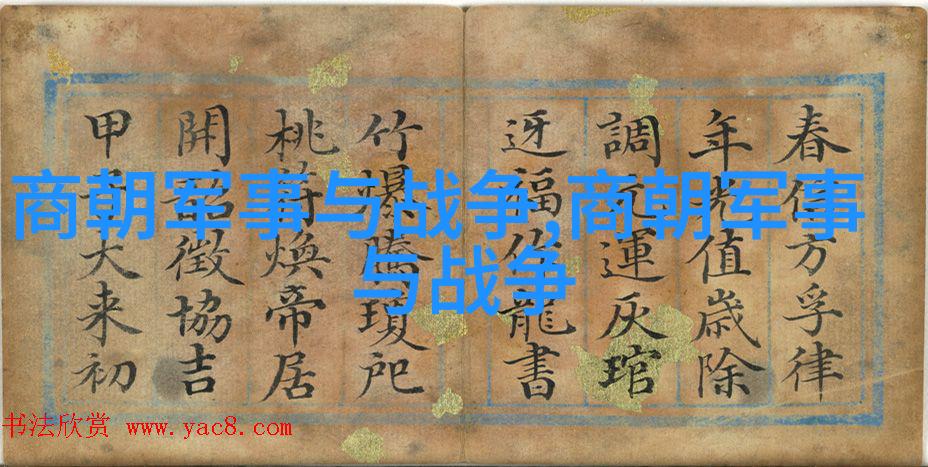 商朝军事与战争,商朝军事
与战争
春信方孚律
年光值歲除
調元運灰琯
迓福龍書
竹爆騰瓊
桃符煥帝居
開韶徵協吉
甲子大来初
书法欣赏 www.yac8.com